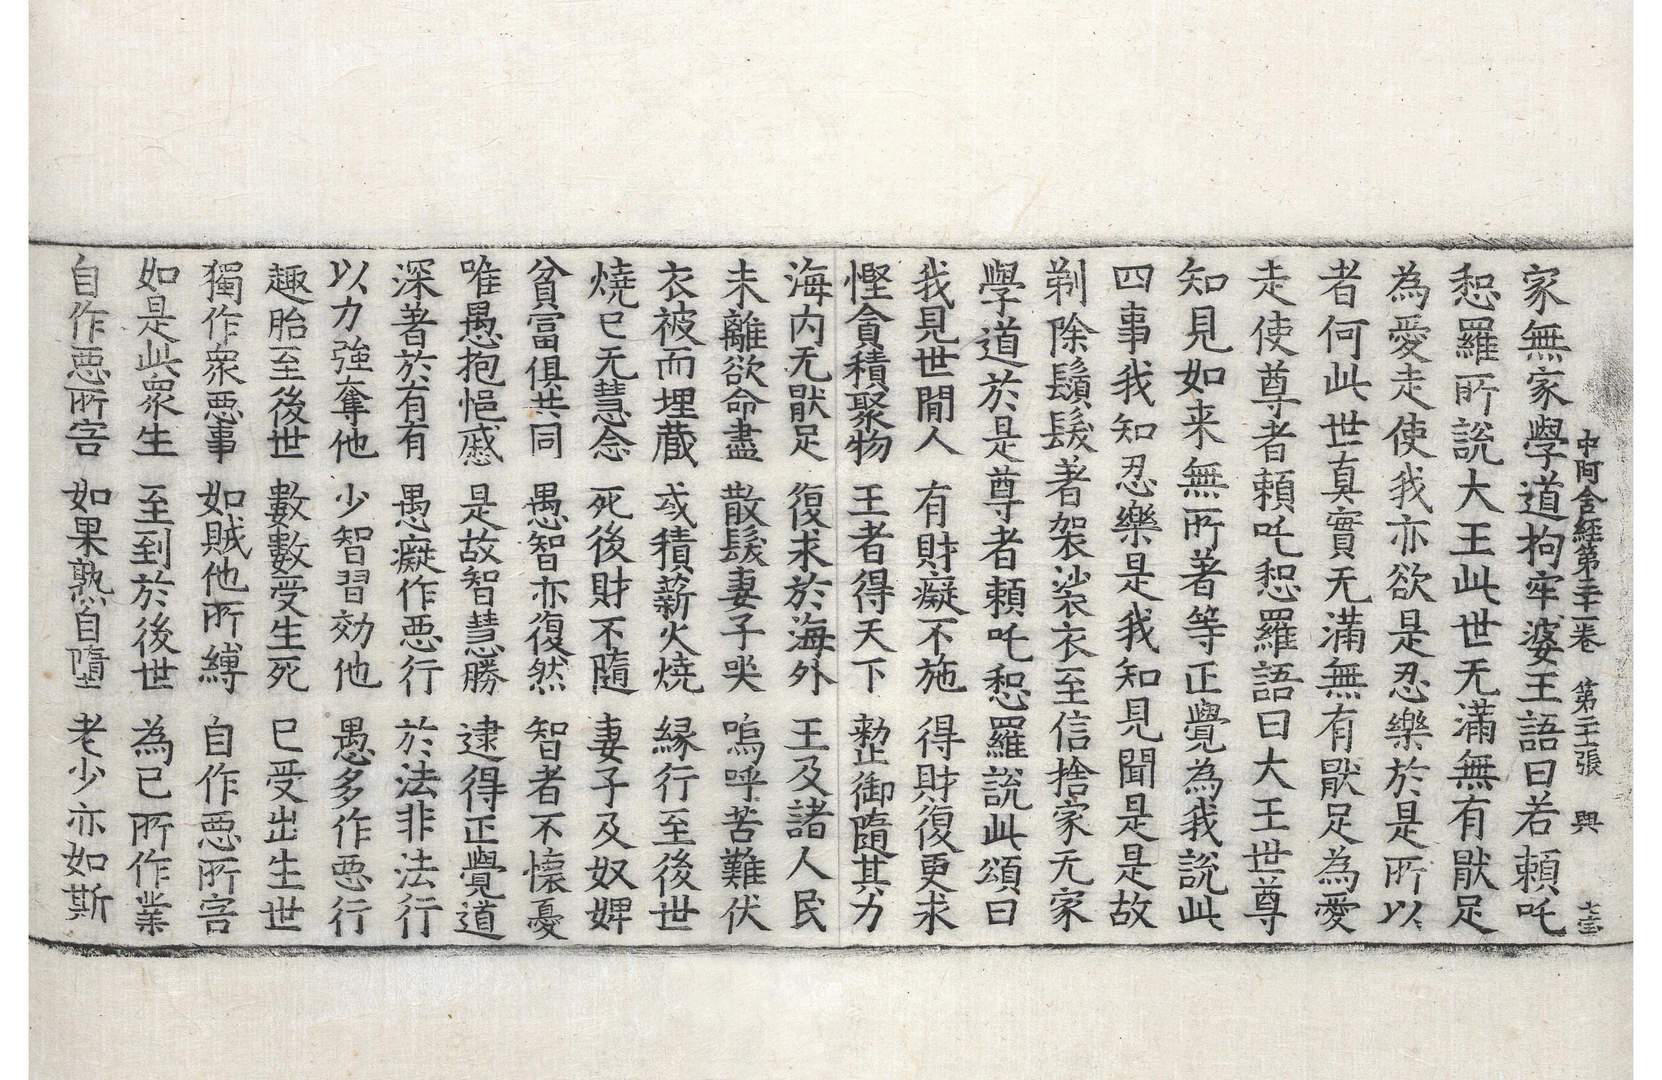 家無家學道拘牢婆王語曰若頼吒
中阿含經第三十一卷 第二十三張 興
恕羅所說大王此世无滿無有猒足
為愛走使我亦欲是忍樂於是所以
者何此世真實无滿無有猒足為愛
走使尊者頼吒恕羅語曰大王世尊
知見如来無所著等正覺為我說此
四事我知忍樂是我知見聞是是故
剃除鬚髮著袈裟衣至信捨家无家
學道於是尊者頼吒恕羅說此頌曰
我見世間人 有財癡不施 得財復更求
慳貪積聚物 王者得天下 勑御隨其力
海内无猒足 復求於海外 王及諸人民
未離欲命盡 散髮妻子哭 嗚呼苦難伏
衣被而埋藏 或積薪火燒 縁行至後世
燒已无慧念 死後財不隨 妻子及奴婢
貧富俱共同 愚智亦復然 智者不懷憂
唯愚抱悒慼 是故智慧勝 逮得正覺道
深著於有有 愚癡作惡行 於法非法行
以力強奪他 少智習効他 愚多作惡行
趣胎至後世 數數受生死 已受出生世
獨作衆惡事 如賊他所縛 自作惡所害
如是此衆生 至到於後世 為已所作業
自作惡所害 如果熟自墮 老少亦如斯